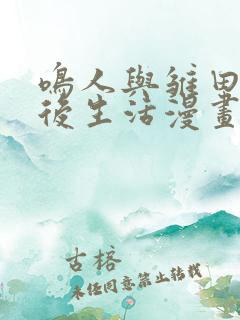 鳴人與雛田
後生活漫畫
古榕
未经同意禁止转载